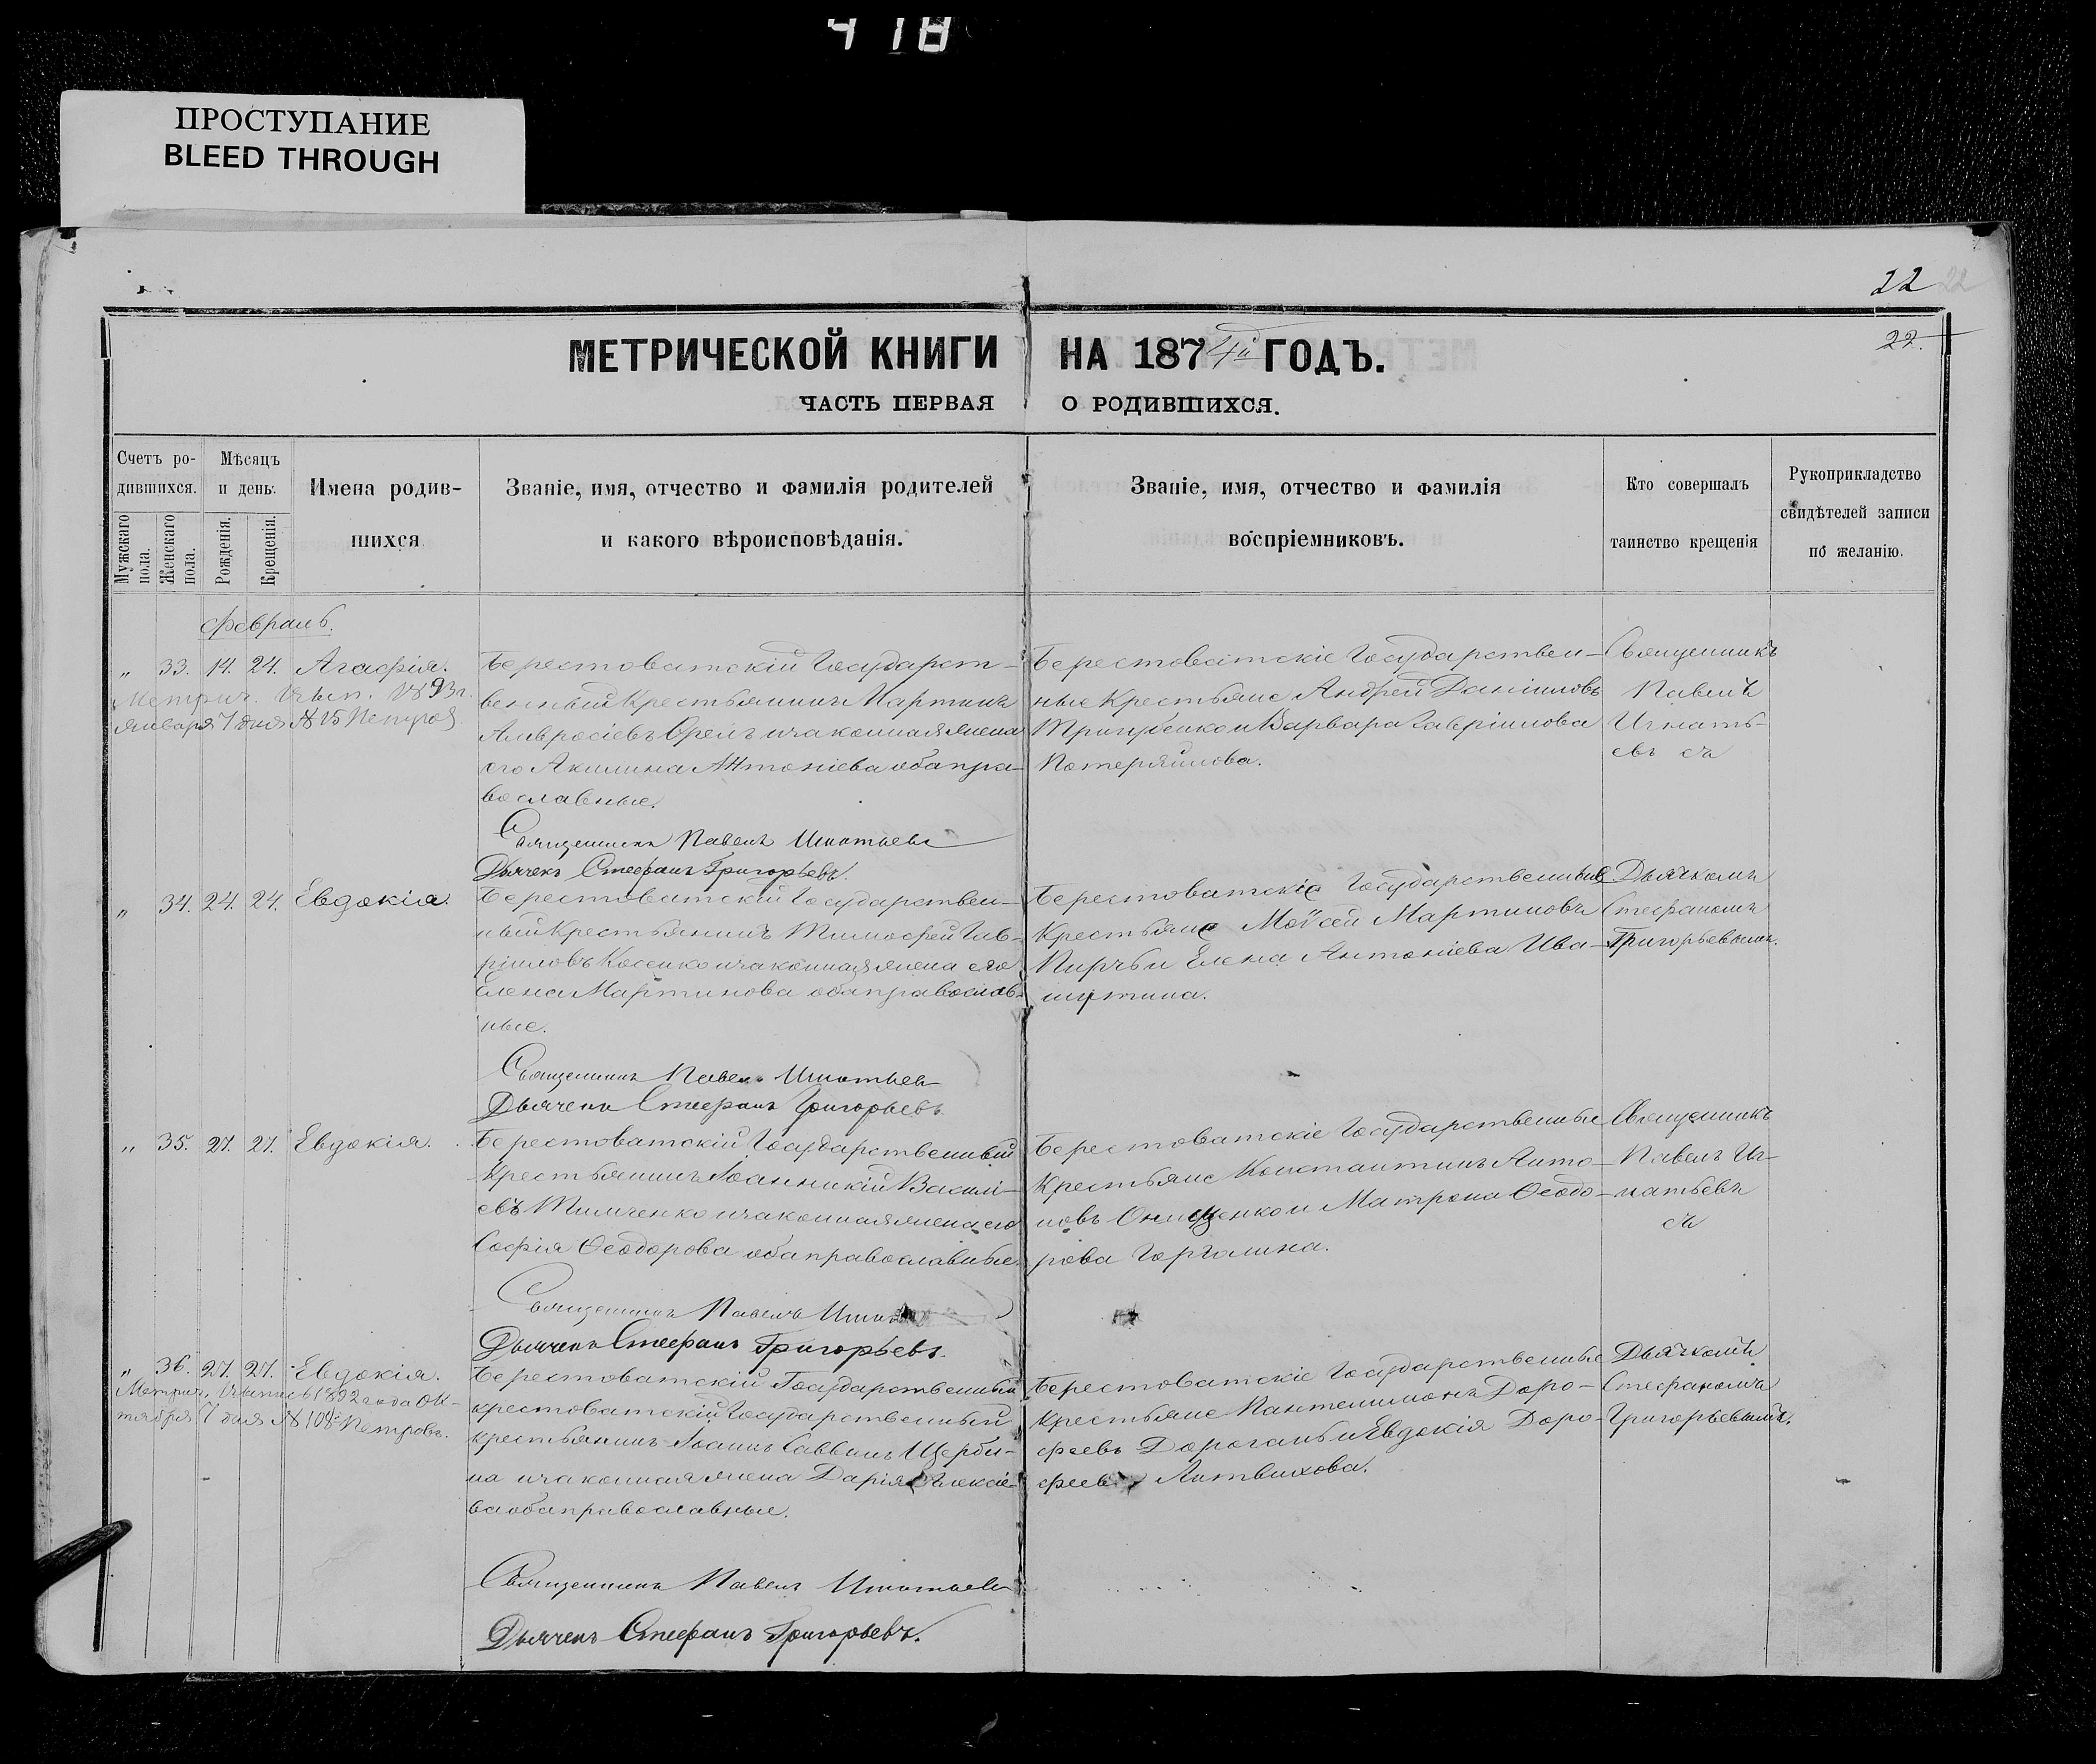 418
ПРОСТУПАНИЕ
BLEED THROUGH
22
22.
МЕТРИЧЕСКОЙ КНИГИ НА 1874й ГОДЪ.
ЧАСТЬ ПЕРВАЯ О РОДИВШИХСЯ.
Счетъ ро-
дившихся.
Мужскаго пола.
Женскаго пола.
Мѣсяцъ
и день.
Рожденія.
Крещенія.
Имена родив-
шихся
Званіе, имя, отчество и фамилія родителей
и какого вѣроисповѣданія.
Званіе, имя, отчество и фамилія
воспріемниковъ.
Кто совершалъ
таинство крещенія
Рукоприкладство
свидѣтелей записи
по желанію.
Февраль.
„ 33. 14. 24. Агафія.
Метрич. Вып. 1893г.
января 7 дня № 15 Петров
Берестоватскій Государст-
венный Крестьянинъ Мартинъ
Амвросіевъ Орелъ и законная жена
его Акилина Антоніева оба пра-
вославные.
Священникъ Павелъ Игнатьевъ
Дьячекъ Стефанъ Григорьевъ.
Берестоватскіе Государствен-
ные Крестьяне Андрей Даніиловъ
Тригубенко и Варвара Гавріилова
Потеряйлова.
Священникъ
Павелъ
Игнать-
евъ съ
„ 34. 24. 24. Евдокія.
Берестоватскій Государствен-
ный Крестьянинъ Тимофей Гав-
ріиловъ Косенко и законная жена его
Елена Мартинова оба православ-
ные.
Священникъ Павелъ Игнатьев
Дьячекъ Стефанъ Григорьевъ
Берестоватскіе Государственные
Крестьяне Моѵсей Мартиновъ
Пирчь и Елена Антоніева Ива-
шутина.
Дьячкомъ
Стефаномъ
Григорьевымъ.
„ 35. 27. 27. Евдокія.
Берестоватскій Государственный
Крестьянинъ Іоанникій Василі-
евъ Тимченко и законная жена его
Софія Ѳеодорова оба православные.
Священникъ Павелъ
Дьячекъ Стефанъ Григорьевъ.
Берестоватскіе Государственные
Крестьяне Константинъ Анто-
новъ Онищенко и Матрона Ѳеодо-
рова Горголина.
Священникъ
Павелъ Иг-
натьевъ
съ
„ 36. 27. 27. Евдокія.
Метрич. 1892 года Ок-
тября 7 дня № 108 Петровъ.
Берестоватскій Государственный
крестоватскій Государственный
крестьянинъ Іоаннъ Саввинъ Щерби-
на и законная жена Дарія Алексіе-
ва оба православные.
Священникъ Павелъ Игнатьевъ
Дьячекъ Стефанъ Григорьевъ.
Берестоватскіе Государственные
Крестьяне Пантелимонъ Доро-
феевъ Дорогань и Евдокія Доро-
феев Литвинова.
Дьячкомъ
Стефаномъ
Григорьевымъ.